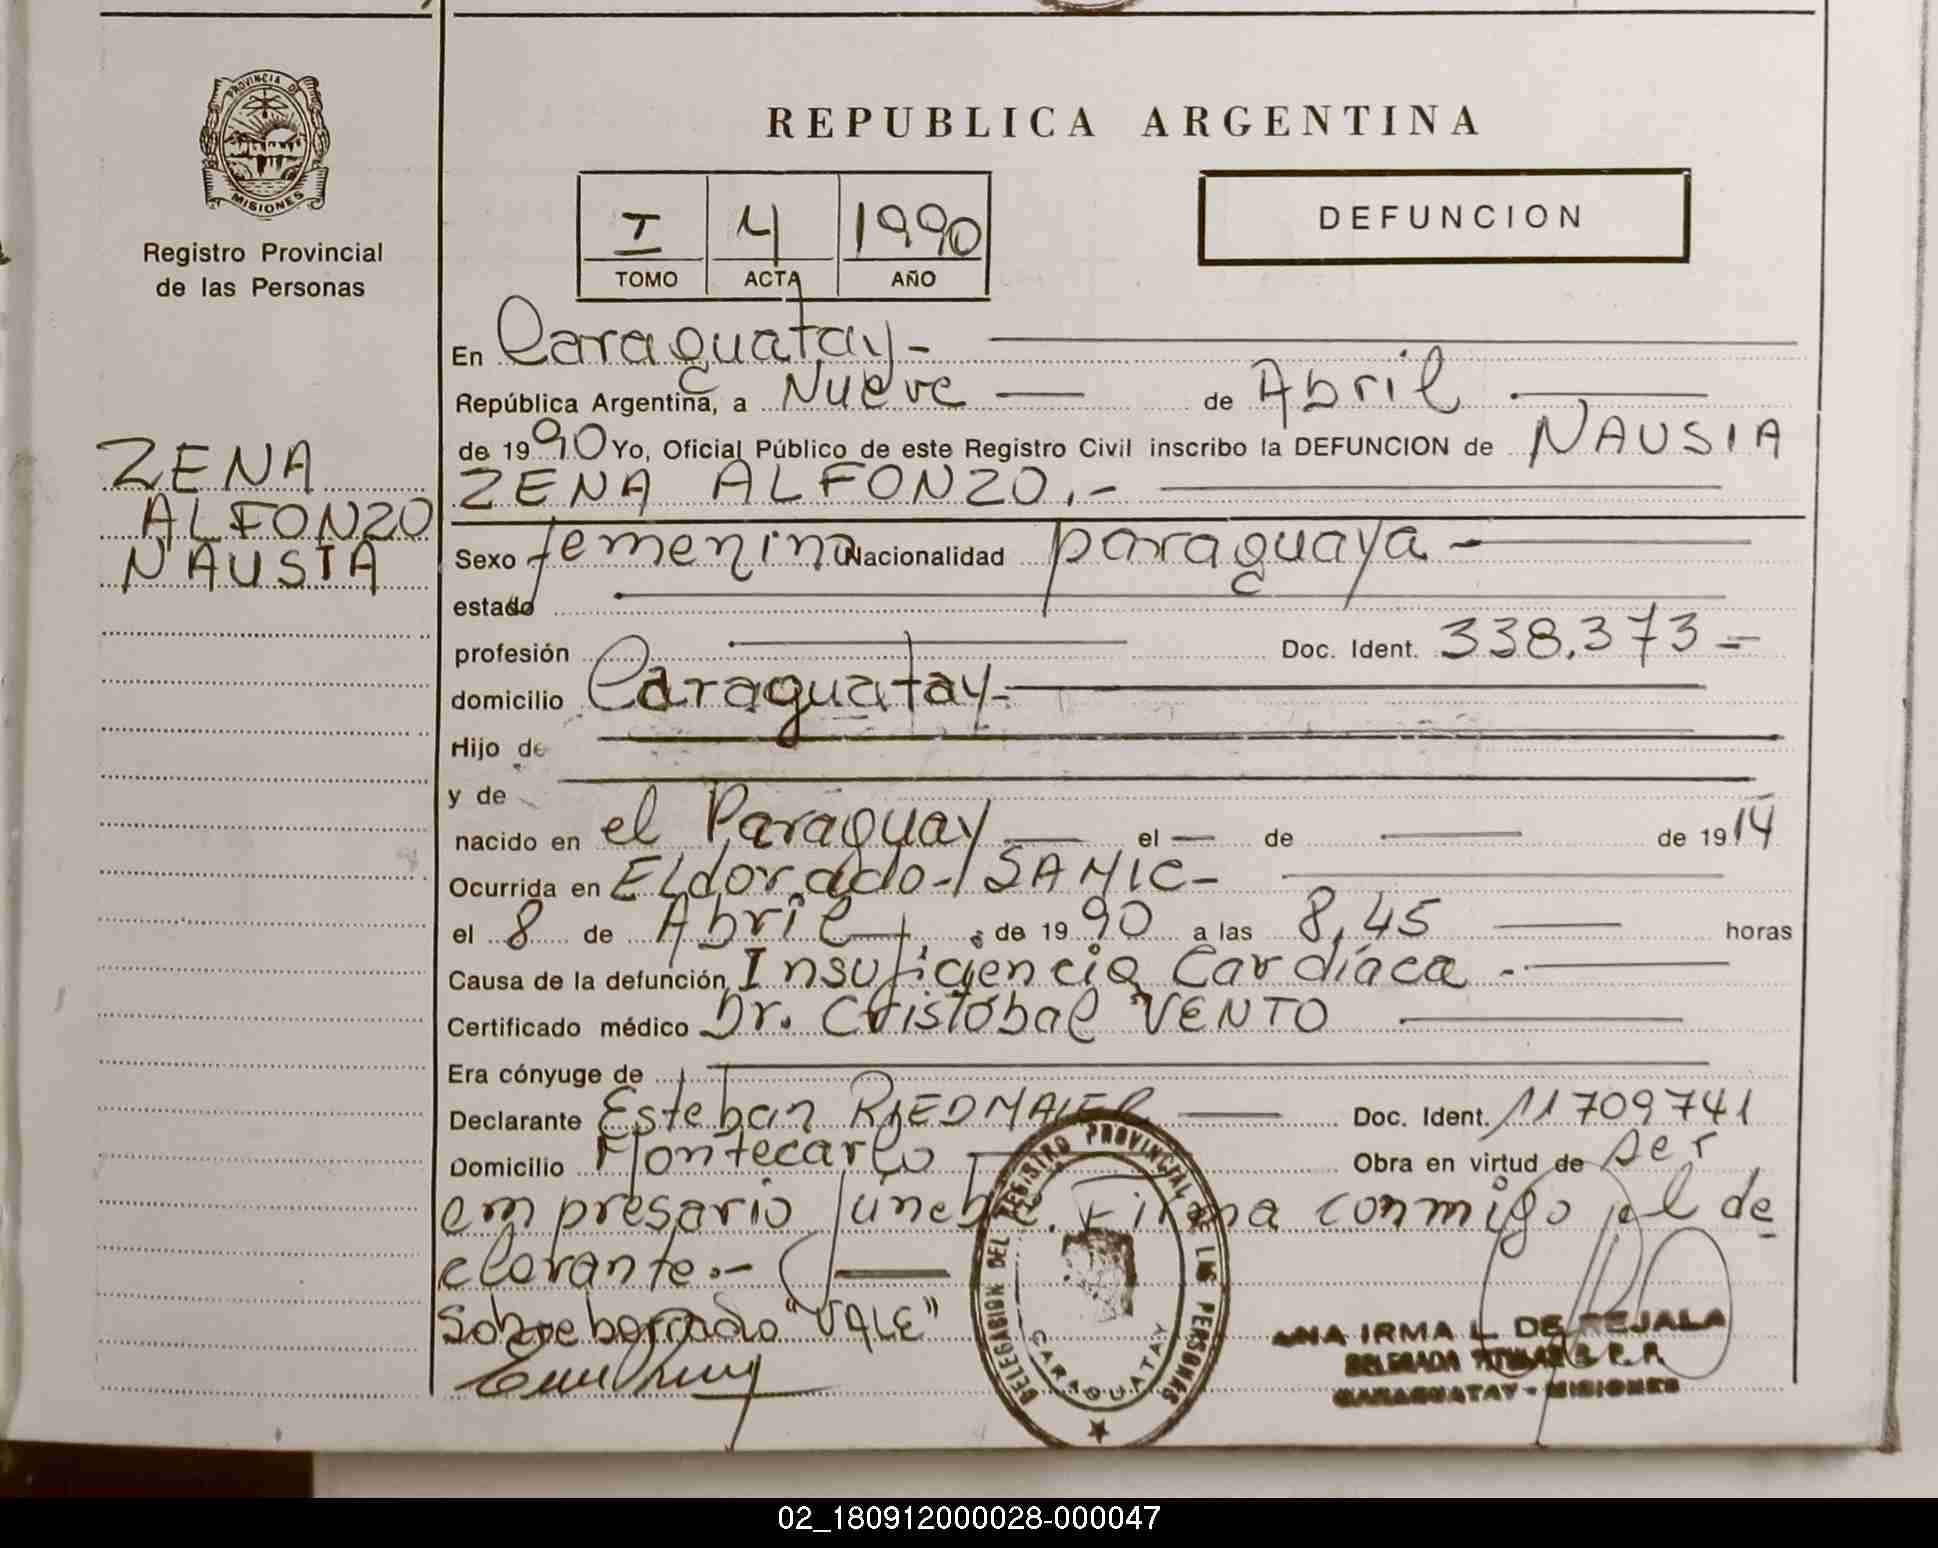 PROVINCIA DE
MISIONES
Registro Provincial
de las Personas
REPUBLICA ARGENTINA
I 4 1990
TOMO ACTA AÑO
DEFUNCION
En Caraguatay-
República Argentina, a Nueve de Abril
de 1990 Yo, Oficial Público de este Registro Civil inscribo la DEFUNCION de NAUSIA
ZENA ALFONZO.-
ZENA
ALFONZO
NAUSIA
Sexo femenino Nacionalidad paraguaya-
estado
profesión Doc. Ident. 338.373=
domicilio Caraguatay-
Hijo de
y de
nacido en el Paraguay el de de 1914
Ocurrida en ELdorado-SAMIC-
el 8 de Abril de 1990 a las 8,45 horas
Causa de la defunción Insuficiencia Cardíaca.-
Certificado médico Dr. Cristóbal VENTO
Era cónyuge de
Declarante Esteban RIEDMAIER Doc. Ident. 11709741
Domicilio Montecarlo Obra en virtud de ser
empresario fúnebre. Firma conmigo el de
clarante.-
Sobreborrado "VALE"
DELEGACION DEL REGISTRO PROVINCIAL DE LAS PERSONAS
CARAGUATAY
ANA IRMA L. DE REJALA
DELEGADA TITULAR R. P. P.
CARAGUATAY - MISIONES
02_180912000028-000047